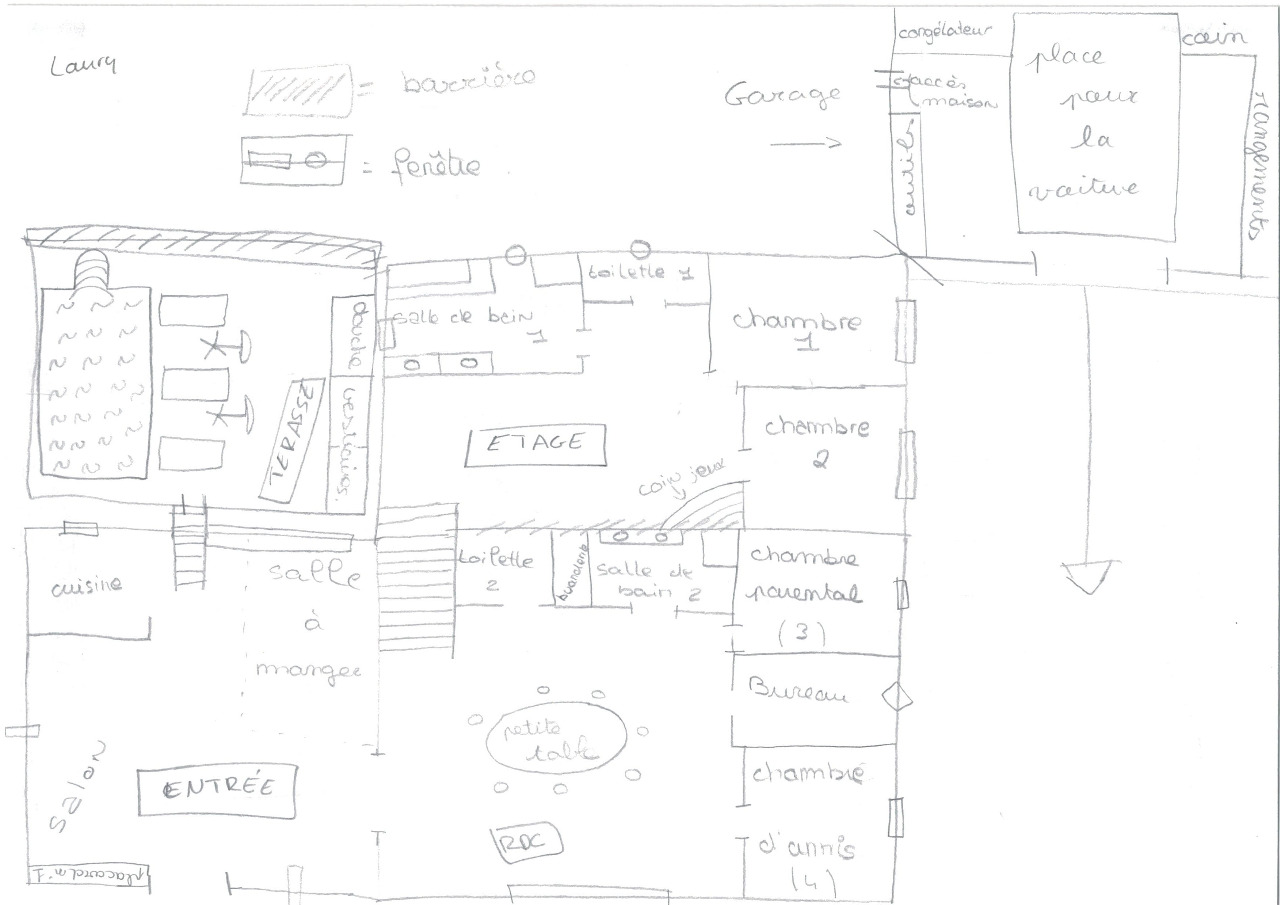 Laury
= barrière
= fenêtre
Garage
congélateur
accès
maison
outils
place
pour
la
voiture
coin
rangements
douche
vestiaires.
TERASSE
salle de bain
1
toilette 1
chambre
1
ETAGE
chambre
2
coin jeux
cuisine
salle
à
manger
toilette
2
buanderie
salle de
bain 2
chambre
parental
(3)
Bureau
petite
table
salon
ENTRÉE
chambre
d'amis
(4)
RDC
placard n°1